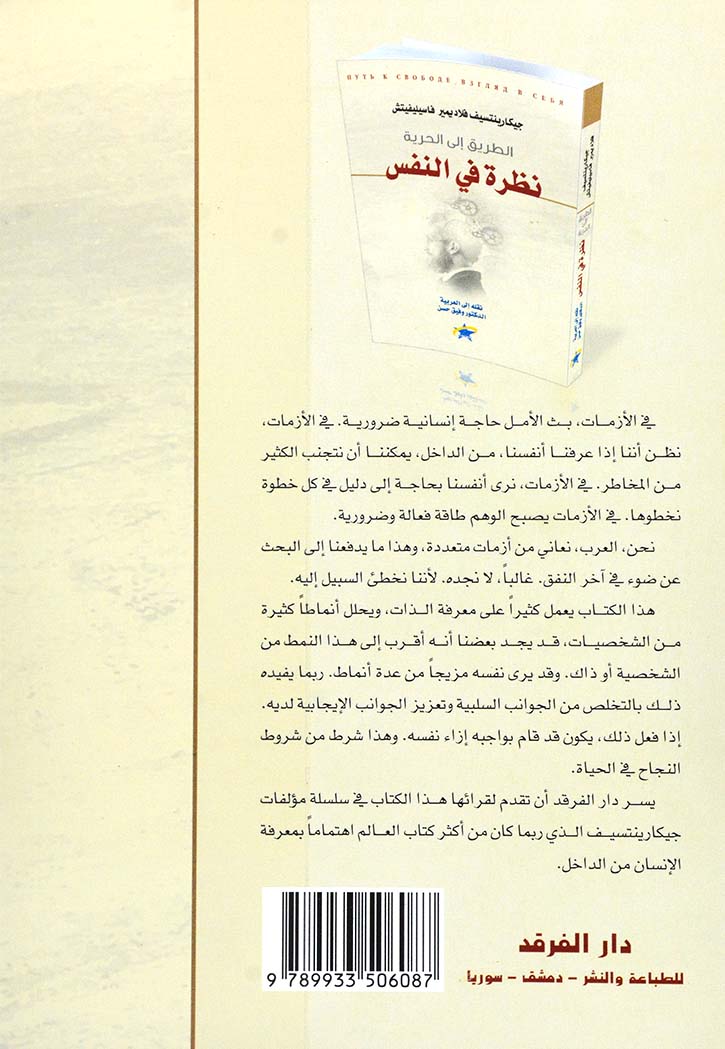 ПУТЬ К СВОБОДЕ. ВЗГЛЯД В СЕБЯ
جيكارينتسيف فلاديمير فاسيليفيتش
الطريق إلى الحرية
نظرة في النفس
نقله إلى العربية
الدكتور وفيق حسن
جيكارينتسيف
فلاديمير فاسيليفيتش
الطريق
إلى
الحرية
نظرة في النفس
في الأزمات، بث الأمل حاجة إنسانية ضرورية. في الأزمات،
نظن أننا إذا عرفنا أنفسنا، من الداخل، يمكننا أن نتجنب الكثير
من المخاطر. في الأزمات، نرى أنفسنا بحاجة إلى دليل في كل خطوة
نخطوها. في الأزمات يصبح الوهم طاقة فعالة وضرورية.
نحن، العرب، نعاني من أزمات متعددة، وهذا ما يدفعنا إلى البحث
عن ضوء في آخر النفق. غالباً، لا نجده. لأننا نخطئ السبيل إليه.
هذا الكتاب يعمل كثيراً على معرفة الذات، ويحلل أنماطاً كثيرة
من الشخصيات، قد يجد بعضنا أنه أقرب إلى هذا النمط من
الشخصية أو ذاك. وقد يرى نفسه مزيجاً من عدة أنماط. ربما يفيده
ذلك بالتخلص من الجوانب السلبية وتعزيز الجوانب الإيجابية لديه.
إذا فعل ذلك، يكون قد قام بواجبه إزاء نفسه. وهذا شرط من شروط
النجاح في الحياة.
يسر دار الفرقد أن تقدم لقرائها هذا الكتاب في سلسلة مؤلفات
جيكارينتسيف الذي ربما كان من أكثر كتاب العالم اهتماماً بمعرفة
الإنسان من الداخل.
دار الفرقد
للطباعة والنشر - دمشق - سوريا
9 789933 506087